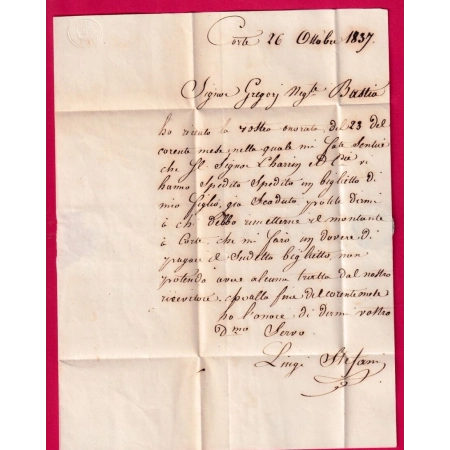 Corte 26 Ottobre 1837.
Signor Gregorj Negte. Bastia
ho receuto la vostra onorata del 23 del
corente mese, nella quale mi fate sentire
che Il Signor
hanno Spedito Spedito un biglietto di
mio figlio, gia Scaduto, potete dirmi
a chi Debbo rimetterne il montante
à Corte, che mi farò un dovere di
pagare il Sudetto biglietto, non
potendo avere alcuna tratta dal nostro
ricevitore, fine del corente mese
ho l'onore di dirmi vostro
Dmo Servo.
Luigi Stefani